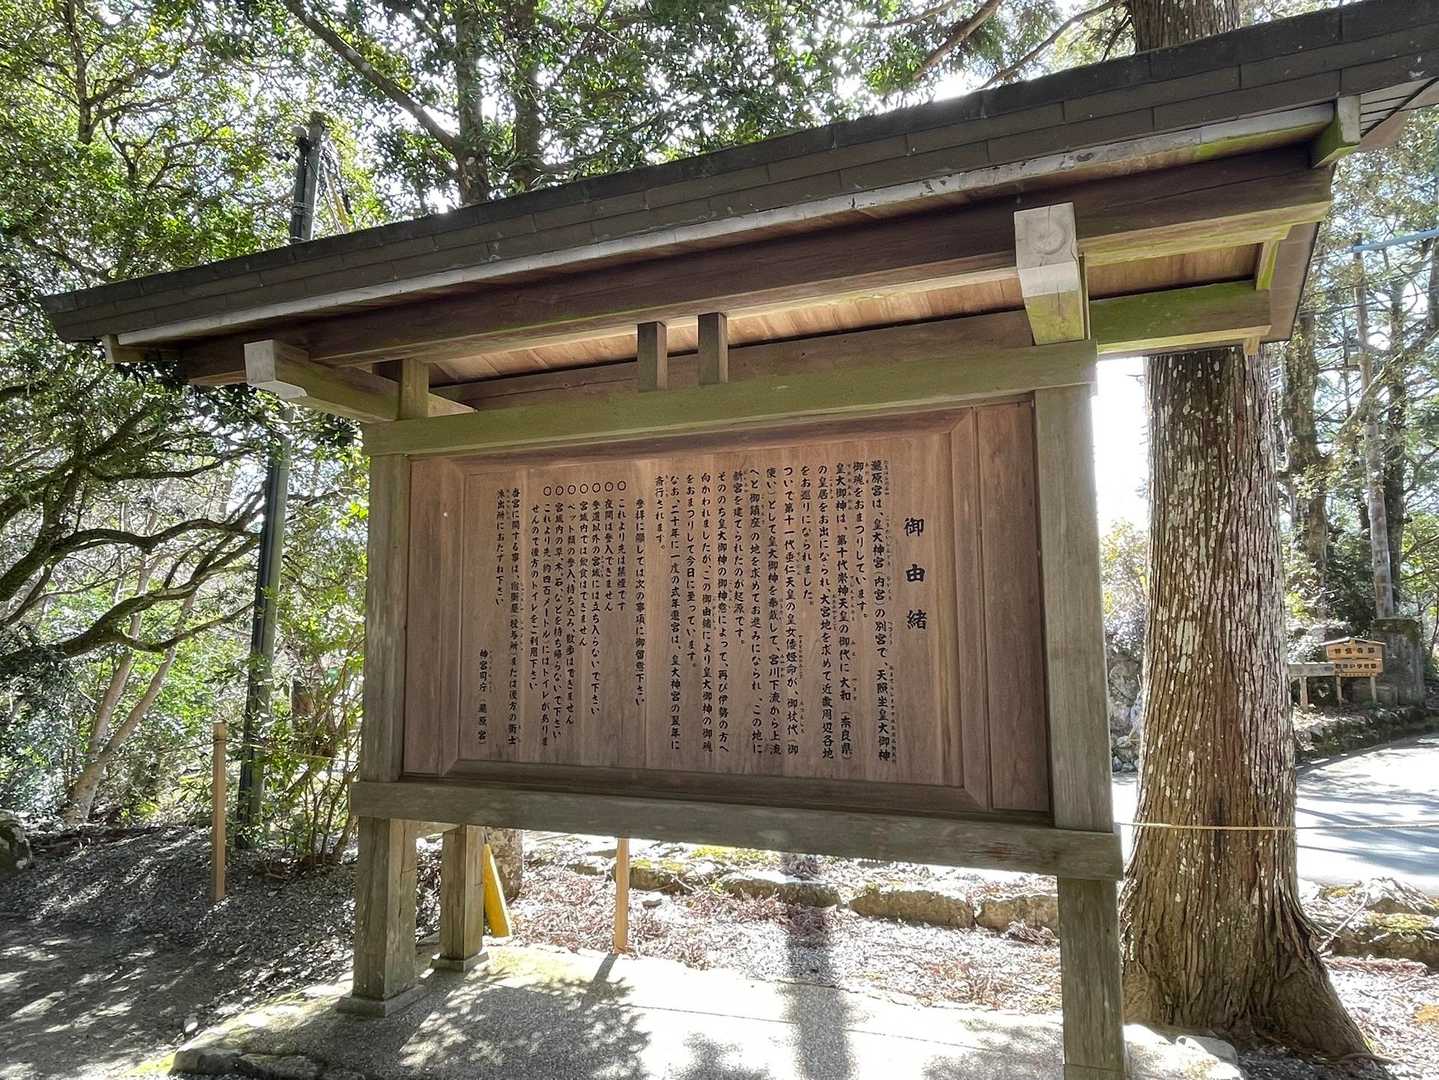 御由緒
瀧原宮は、皇大神宮（内宮）の別宮で、天照坐皇大御神
御魂をおまつりしています。
皇大御神は、第十代崇神天皇の御代に大和（奈良県）
の皇居をお出になられ、大宮地を求めて近畿周辺各地
をお巡りになられました。
ついで第十一代垂仁天皇の皇女倭姫命が、御杖代（御
使い）として皇大御神を奉戴して、宮川下流から上流
へと御鎮座の地を求めてお進みになられ、この地に
新宮を建てられたのが起源です。
そののち皇大御神の御神意によって、再び伊勢の方へ
向かわれましたが、この御由緒により皇大御神の御魂
をおまつりして今日に至っています。
なお、二十年に一度の式年遷宮は、皇大神宮の翌年に
斎行されます。
参拝に際しては次の事項に御留意下さい
○これより先は禁煙です
○夜間は参入できません
○参道以外の宮域には立ち入らないで下さい
○宮域内では飲食はできません
○ペット類の参入、持ち込み、散歩はできません
○宮域内の草、木、石などを持ち帰らないで下さい
○これより先、約四百メートルにはトイレがありま
せんので後方のトイレをご利用下さい
当宮に関する事は、宿衛屋（授与所）または後方の衛士
派出所におたずね下さい
神宮司庁（瀧原宮）